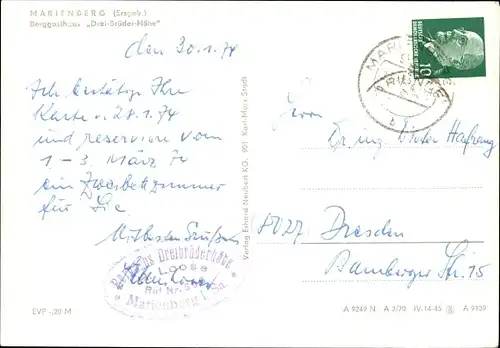 MARIENBERG (Erzgeb.)
Berggasthaus „Drei-Brüder-Höhe"
den 30.1.74
Ich bestätige Ihre
Karte v. 28.1.74
und reserviere vom
1.-3. März 74
ein Zweibettzimmer
für Sie.
Mit besten Grüßen
Dreibrüderhöhe
Loose
Ruf Nr.
Marienberg i. Sa.
EVP -,20 M
Verlag Erhard Neubert KG, 901 Karl-Marx-Stadt
10
MARIENBERG
b
Herrn
Dr. ing. Dieter
8027 Dresden
Bamberger Str. 15
A 9249 N A 3/70 IV-14-45 A 9139